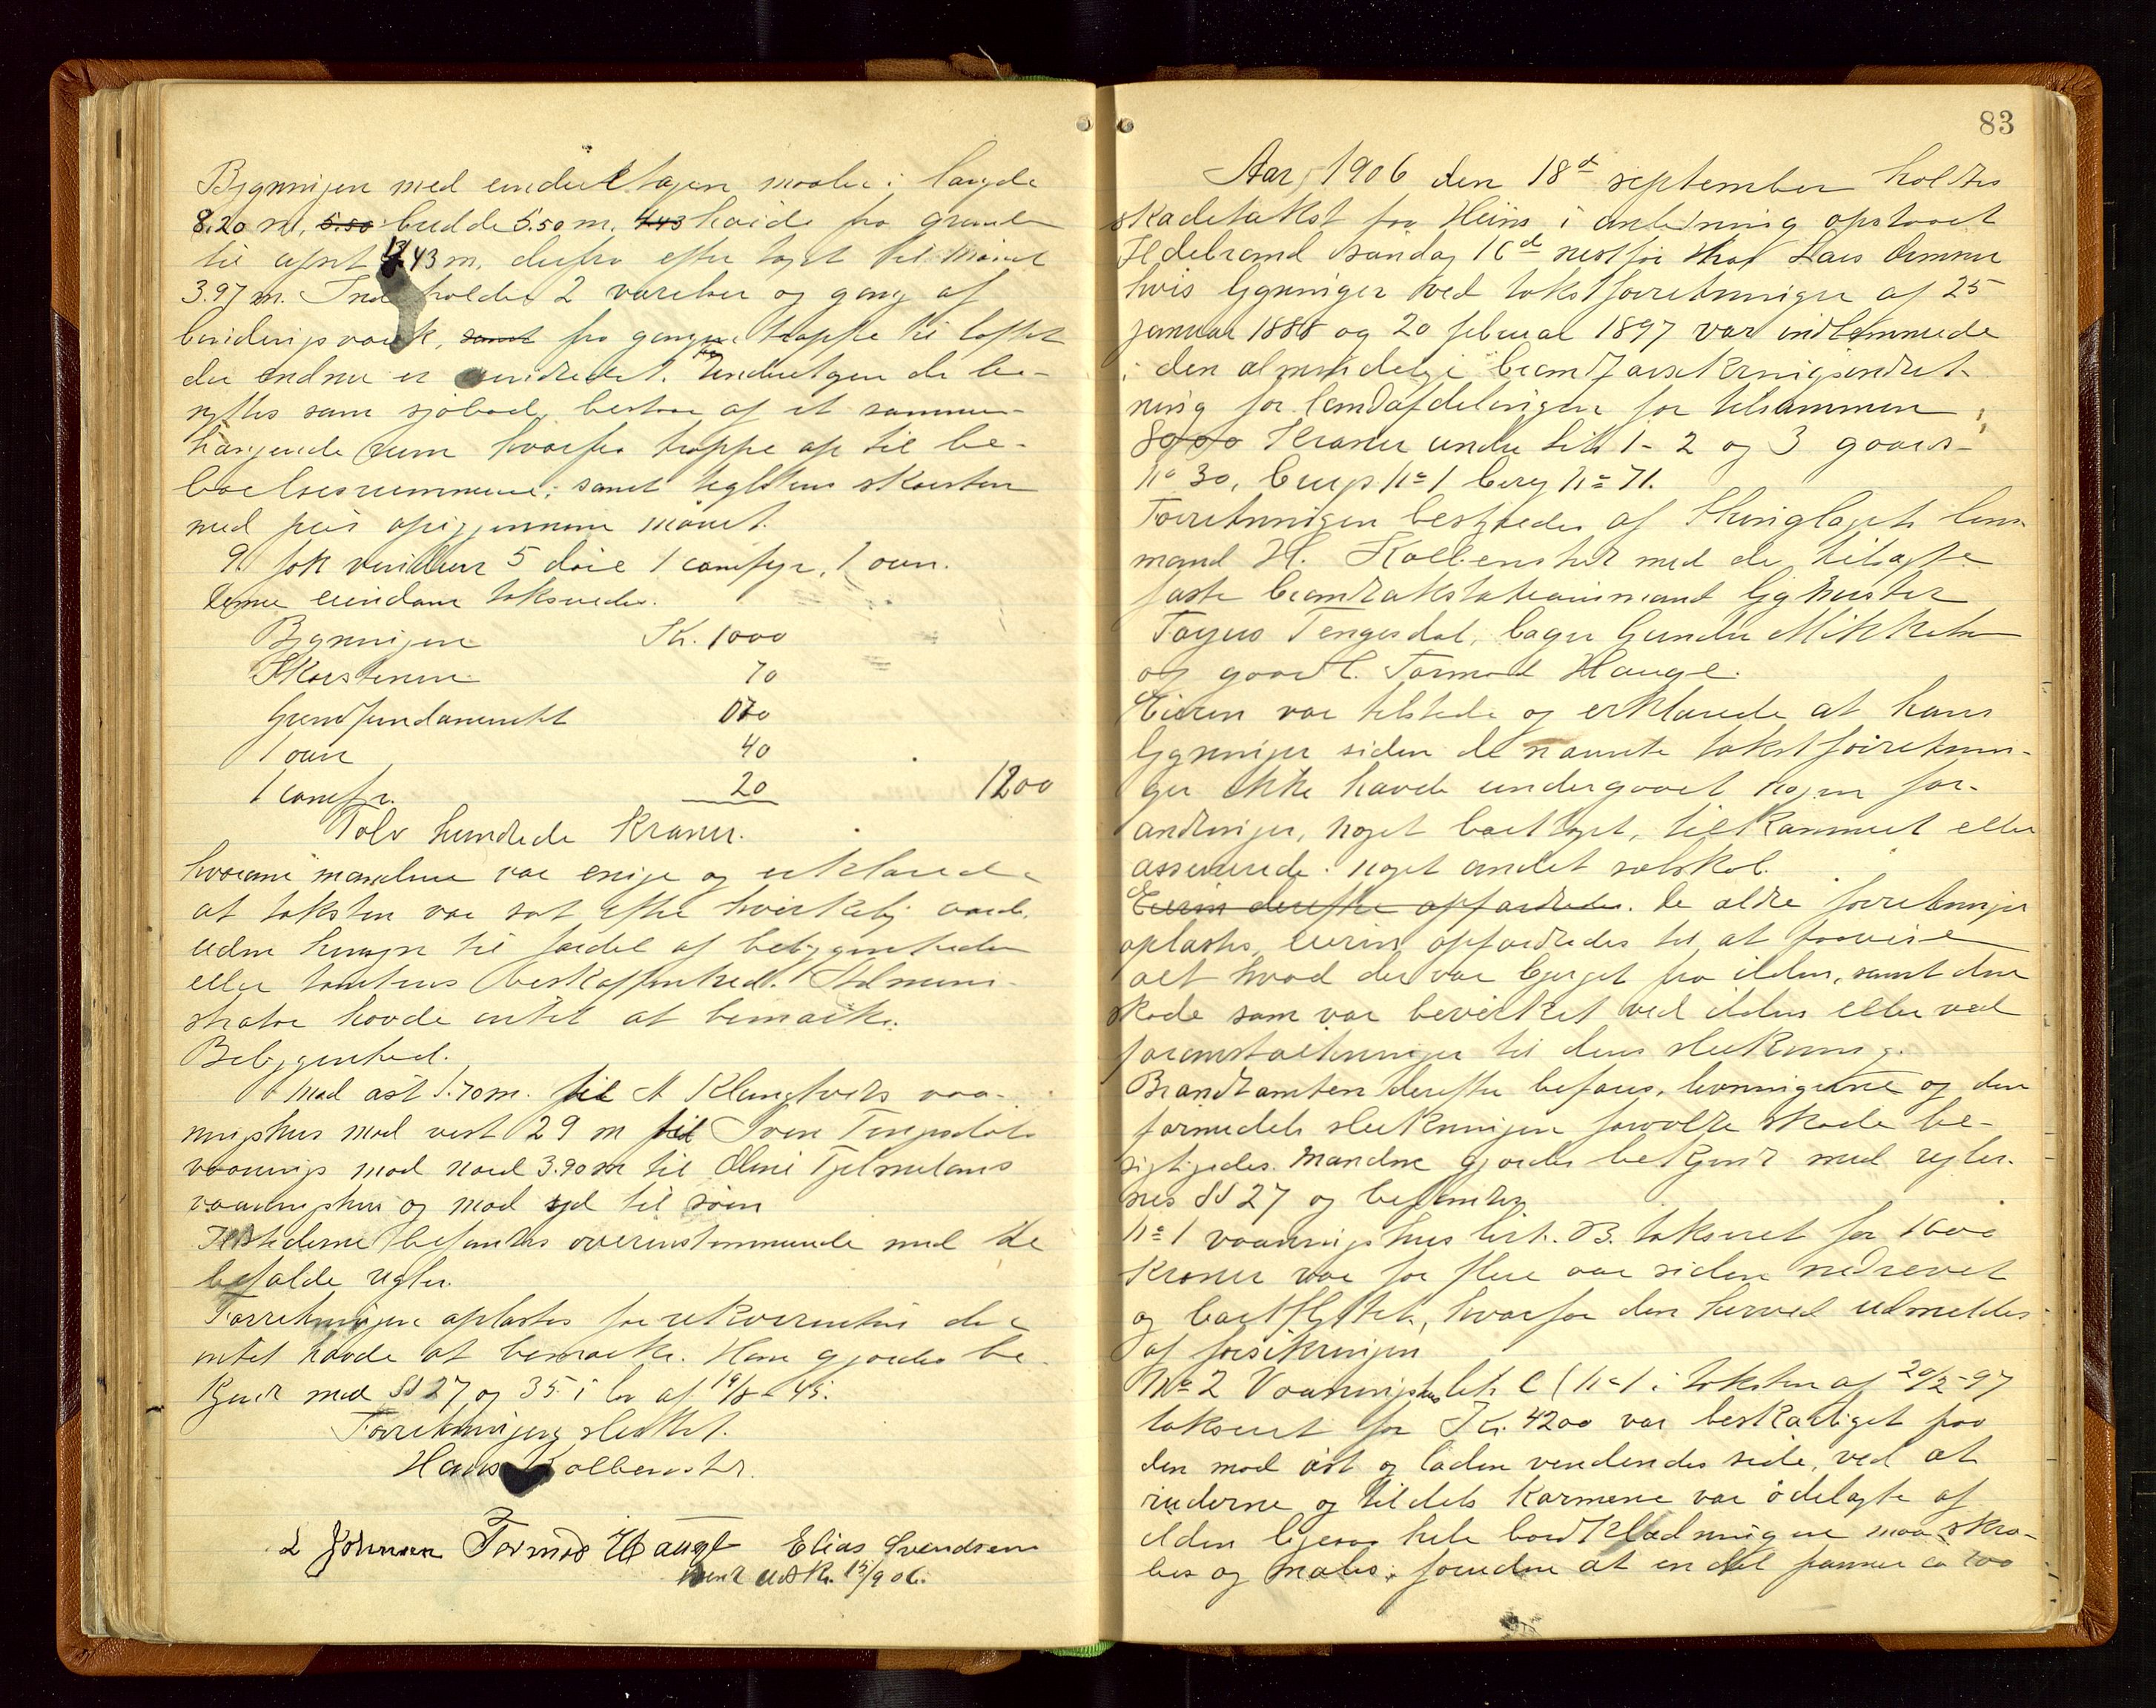 Bygningen med underetagen maaler i længde
8.20 m, 5.50 bredde 5.50 m. 443 høide fra grund
til øfset 4.43 m. derfra efter taget til mønet
3.97 m. Indeholder 2 værelser og gang af
bindingsværk, samt fra gangen trappe til loftet
der endnu er uindredet. Underetagen der be-
nyttes som sjøbod, bestaar af et sammen-
hængende rum hvorfra trappe op til be-
boelsesrummene; samt teglstens skorsten
med peis opigjennem mønet.
9 fok vinduer 5 døre 1 comfyr, 1 ovn.
Denne eiendom takseredes.
Bygningen Kr. 1000
Skorstenen 70
Grundfundamentet 070
1 ovn 40
1 comfr. 20 1200
Tolv hundrede Kroner.
hvorom mændene var enige og erklærede
at taksten var sat efter hvirkelig værdi,
uden hensyn til fordel af beliggenheden
eller tomtens beskaffenhed. Admini-
strator havde intet at bemærke.
Beliggenhed.
Mod øst 1.70 m. til A Klungtveits vaa-
ningshus mod vest 29 m til Sven Tengesdals
vaanings mod nord 3.90 m til Olene Tjelmelans
vaaningshus og mod syd til søen
Ildstederne befantes overenstemmende med de
befalde regler.
Forretningen oplæstes for rekvirenten der
intet havde at bemærke. Han gjordes be-
kjendt med §§ 27 og 35 i lov af 19/8 - 45.
Forretningen sluttet.
Hans Kolbenstvt.
L Johnsen Tormod Hauge Elias Svendsen
Bevidt udskr. 15/9 06.
83
Aar 1906 den 18d september holdtes
skadetakst paa Hiins i anledning opstaaet
Ildebrand søndag 16d nestfør hos Lars
hvis bygninger ved takstforretninger af 25
januar 1888 og 20 februar 1897 var indlemmede
i den almindelige brandforsikringsindret-
ning for landafdelingen for tilsammen
8000 Kroner under litr 1 - 2 og 3 gaards-
No 30, brugs No 1 berg No 71.
Forretningen bestyredes af thinglagets lens-
mand H. Kolbenstvt med de tillagte
faste brandtakstationsmænd bygmester
Tøgens Tengesdal, bager Gunder Mikkelsen
og gaardb. Tormod Hauge.
Eieren var tilstede og erklærede at hans
bygninger siden de nævnte takstforretnin-
ger ikke havde undergaaet nogen for-
andringer, noget borttaget, tilkommet eller
assurerede i noget andet selskab.
Eieren derefter opfordredes. De ældre forretninger
oplæstes, eieren opfordredes til at paavise
alt hvad der var bjerget fra ilden, samt den
skade som var bevirket ved ilden eller ved
foranstaltninger til dens slukning.
Brandtomten derefter befares, levningerne og den
formedels slukningen forvolte skade be-
sigtigedes. Mændene gjordes bekjendt med regler-
nes §§ 27 og befandtes
No 1 vaaningshus litr. B. takseret for 1600
kroner var for flere aar siden nedrevet
og bortflyttet, hvorfor den herved udmeldes
af forsikringen
No 2 Vaaningshus litr C (No 1 i taksten af 20/2-97
takseret for Kr. 4200 var beskadiget paa
den mod øst og laden vendendes side, ved at
ruderne og tildels karmene var ødelagte af
ilden ligesaa hele bordklædningen maa skra-
bes og males; foruden at en del panner ca 100